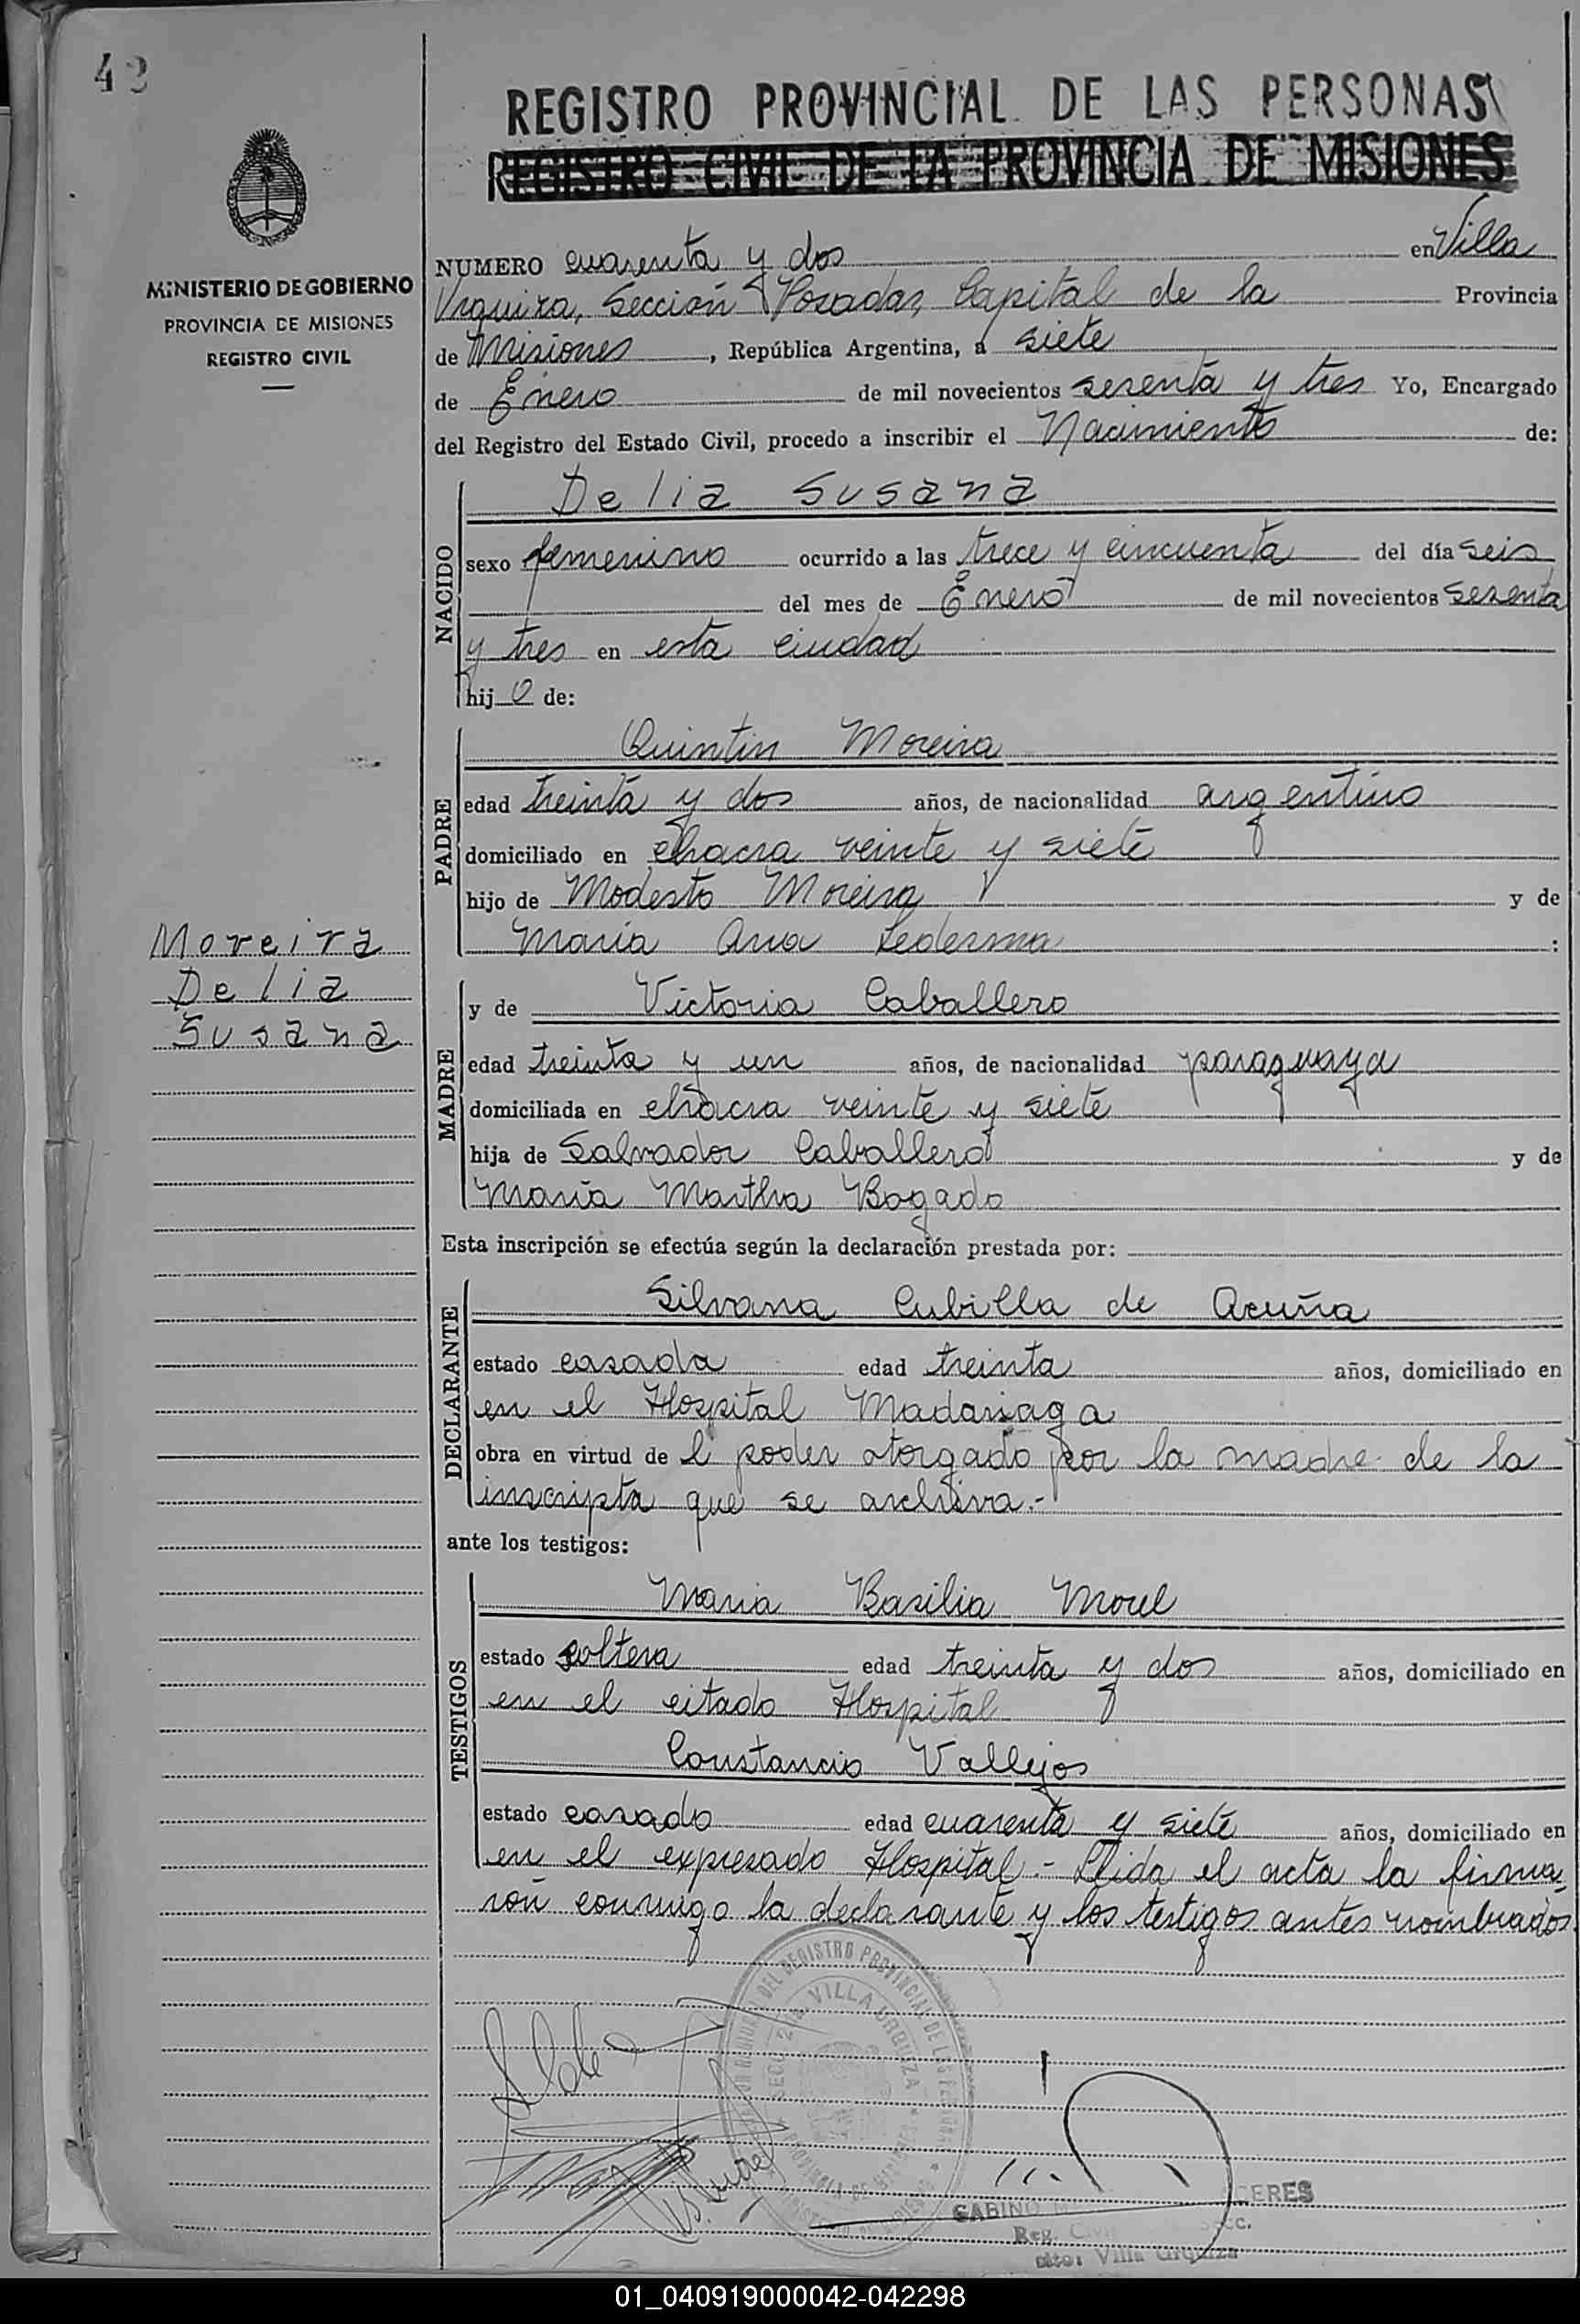 42
REGISTRO PROVINCIAL DE LAS PERSONAS
REGISTRO CIVIL DE LA PROVINCIA DE MISIONES
MINISTERIO DE GOBIERNO
PROVINCIA DE MISIONES
REGISTRO CIVIL
NUMERO cuarenta y dos en Villa
Urquiza, Sección Posadas, Capital de la Provincia
de Misiones, República Argentina, a siete
de Enero de mil novecientos sesenta y tres Yo, Encargado
del Registro del Estado Civil, procedo a inscribir el Nacimiento de:
NACIDO
Delia Susana
sexo femenino ocurrido a las trece y cincuenta del día seis
del mes de Enero de mil novecientos sesenta
y tres en esta ciudad
hij o de:
PADRE
Quintin Moreira
edad treinta y dos años, de nacionalidad argentino
domiciliado en chacra veinte y siete
hijo de Modesto Moreira y de
María Ana Ledesma :
Moreira
Delia
Susana
MADRE
y de Victoria Caballero
edad treinta y un años, de nacionalidad paraguaya
domiciliada en chacra veinte y siete
hija de Salvador Caballero y de
María Martha Bogado
Esta inscripción se efectúa según la declaración prestada por:
DECLARANTE
Silvana Cubilla de Acuña
estado casada edad treinta años, domiciliado en
en el Hospital Madariaga
obra en virtud de l poder otorgado por la madre de la
inscripta que se archiva.-
ante los testigos:
TESTIGOS
María Basilia Morel
estado soltera edad treinta y dos años, domiciliado en
en el citado Hospital
Constancio Vallejos
estado casado edad cuarenta y siete años, domiciliado en
en el expresado Hospital.- Leida el acta la firma
ron conmigo la declarante y los testigos antes nombrados.
DEL REGISTRO PROVINCIAL DE LAS
SECC. 2a. VILLA URQUIZA
PROVINCIA DE MISIONES
GABINO CERES
Reg. Civil Secc.
Villa Urquiza
01_040919000042-042298